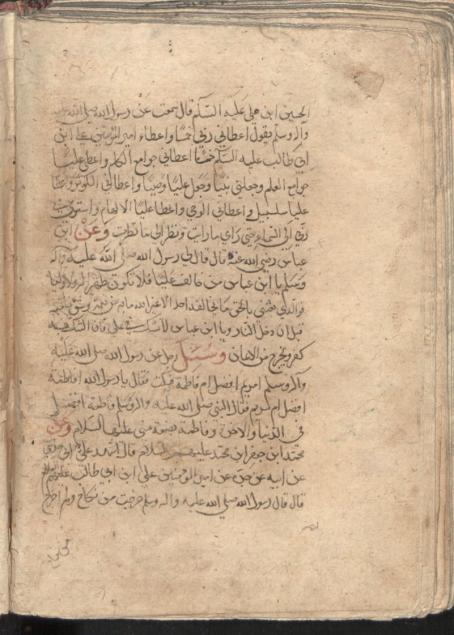 الحسين ابن علي عليه السلام قال سمعت عن رسول الله صلى الله عليه
وآله وسلم يقول اعطاني ربي خمسا واعطاء امير المؤمنين علي ابن
ابي طالب عليه السلام خمسا اعطاني جوامع الكلم واعطى عليا
جوامع العلم وجعلني نبيا وجعل عليا وصيا واعطاني الكوثر واعطا
عليا سلسبيل واعطاني الوحي واعطا عليا الالهام واسرى بي
ربي الى السماء حتى راى ما رايت ونظر الى ما نظرت وعن ابن
عباس رضي الله عنه قال قال لي رسول الله صلى الله عليه وآله
وسلم يا ابن عباس من خالف عليا فلا تكونن ظهيرا له ولا وليا
فوالذي بعثني بالحق ما يخالفه احد الا غير الله ما به من نعمه
قبل ان دخل النار ويا ابن عباس لا تشك في علي فان الشك فيه
كفر ويخرج من الايمان وسئل رجل عن رسول الله صلى الله عليه
وآله وسلم امريم افضل ام فاطمة فقال يا رسول الله افاطمة
افضل ام مريم فقال النبي صلى الله عليه وآله وسلم فاطمة افضل
في الدنيا والاخرة وفاطمة بضعة مني عليها السلام وعن
محمد ابن جعفر ابن محمد عليهم السلام قال
عن ابيه عن جده عن امير المؤمنين علي ابن ابي طالب عليه السلام
قال قال رسول الله صلى الله عليه وآله وسلم خرجت من نكاح ولم اخرج